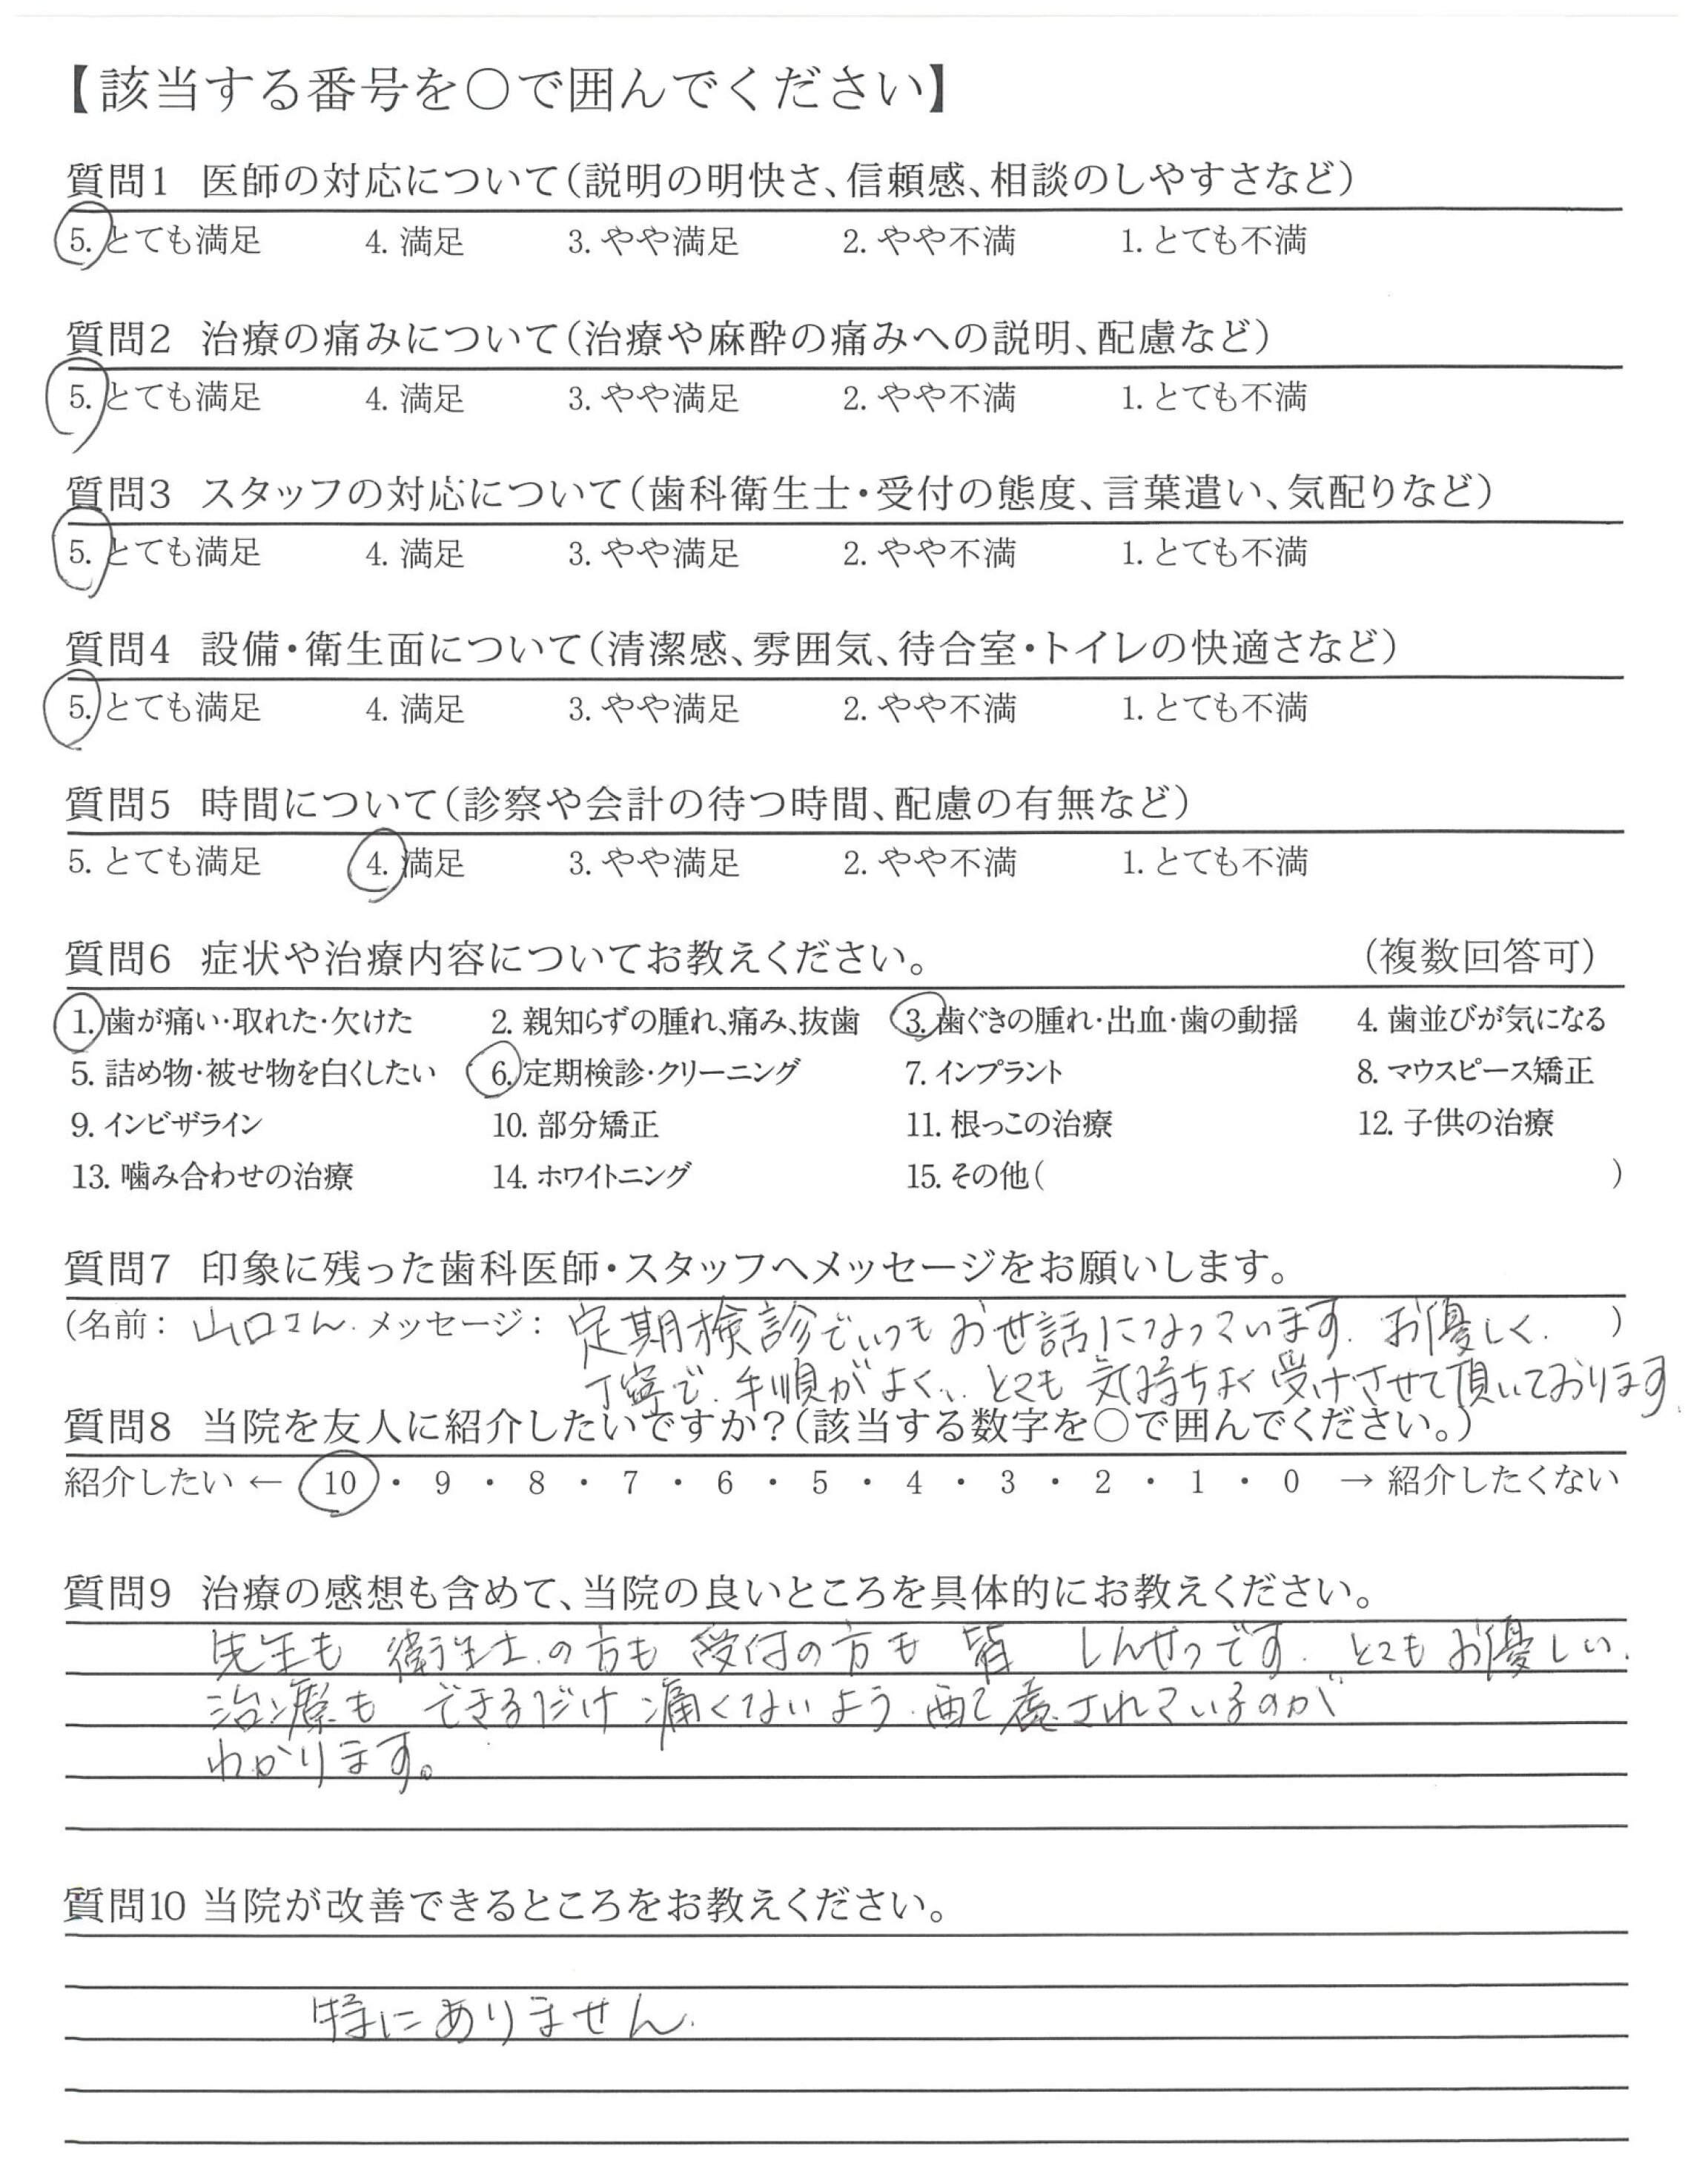 【該当する番号を○で囲んでください】
質問1 医師の対応について(説明の明快さ、信頼感、相談のしやすさなど)
5. とても満足 4. 満足 3. やや満足 2. やや不満 1. とても不満
質問2 治療の痛みについて(治療や麻酔の痛みへの説明、配慮など)
5. とても満足 4. 満足 3. やや満足 2. やや不満 1. とても不満
質問3 スタッフの対応について(歯科衛生士・受付の態度、言葉遣い、気配りなど)
5. とても満足 4. 満足 3. やや満足 2. やや不満 1. とても不満
質問4 設備・衛生面について(清潔感、雰囲気、待合室・トイレの快適さなど)
5. とても満足 4. 満足 3. やや満足 2. やや不満 1. とても不満
質問5 時間について(診察や会計の待つ時間、配慮の有無など)
5. とても満足 4. 満足 3. やや満足 2. やや不満 1. とても不満
質問6 症状や治療内容についてお教えください。 (複数回答可)
1. 歯が痛い・取れた・欠けた 2. 親知らずの腫れ、痛み、抜歯 3. 歯ぐきの腫れ・出血・歯の動揺 4. 歯並びが気になる
5. 詰め物・被せ物を白くしたい 6. 定期検診・クリーニング 7. インプラント 8. マウスピース矯正
9. インビザライン 10. 部分矯正 11. 根っこの治療 12. 子供の治療
13. 噛み合わせの治療 14. ホワイトニング 15. その他( )
質問7 印象に残った歯科医師・スタッフへメッセージをお願いします。
(名前: 山口さん. メッセージ: 定期検診でいつもお世話になっています. お優しく. )
丁寧で. 手順がよく、とても気持ちよく受けさせて頂いております.
質問8 当院を友人に紹介したいですか?(該当する数字を○で囲んでください。)
紹介したい ← 10 ・ 9 ・ 8 ・ 7 ・ 6 ・ 5 ・ 4 ・ 3 ・ 2 ・ 1 ・ 0 → 紹介したくない
質問9 治療の感想も含めて、当院の良いところを具体的にお教えください。
先生も 衛生士の方も 受付の方も 皆 しんせつです. とてもお優しい.
治療も できるだけ 痛くないよう. 配慮されているのが
わかります。
質問10 当院が改善できるところをお教えください。
特にありません.